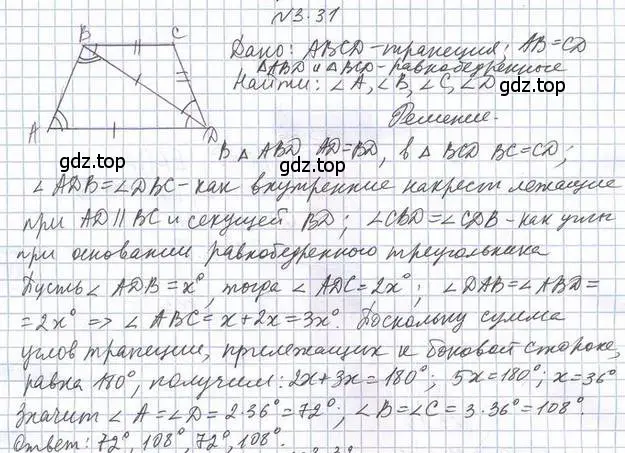 №3.31
B C
A D
Дано: ABCD - трапеция; AB = CD
△ABD и △BCD - равнобедренные
Найти: ∠A, ∠B, ∠C, ∠D
Решение.
В △ ABD AD = BD, в △ BCD BC = CD;
gdz.top gdz.top
∠ADB = ∠DBC - как внутренние накрест лежащие
при AD ∥ BC и секущей BD; ∠CBD = ∠CDB - как углы
при основании равнобедренного треугольника
gdz.top gdz.top
Пусть ∠ ADB = x°, тогда ∠ ADC = 2x°; ∠DAB = ∠ABD =
= 2x° => ∠ ABC = x + 2x = 3x°. Поскольку сумма
углов трапеции, прилежащих к боковой стороне,
равна 180°, получим: 2x + 3x = 180°; 5x = 180°; x = 36°
gdz.top gdz.top
Значит ∠ A = ∠D = 2·36° = 72°; ∠B = ∠C = 3·36° = 108°.
Ответ: 72°, 108°, 72°, 108°.